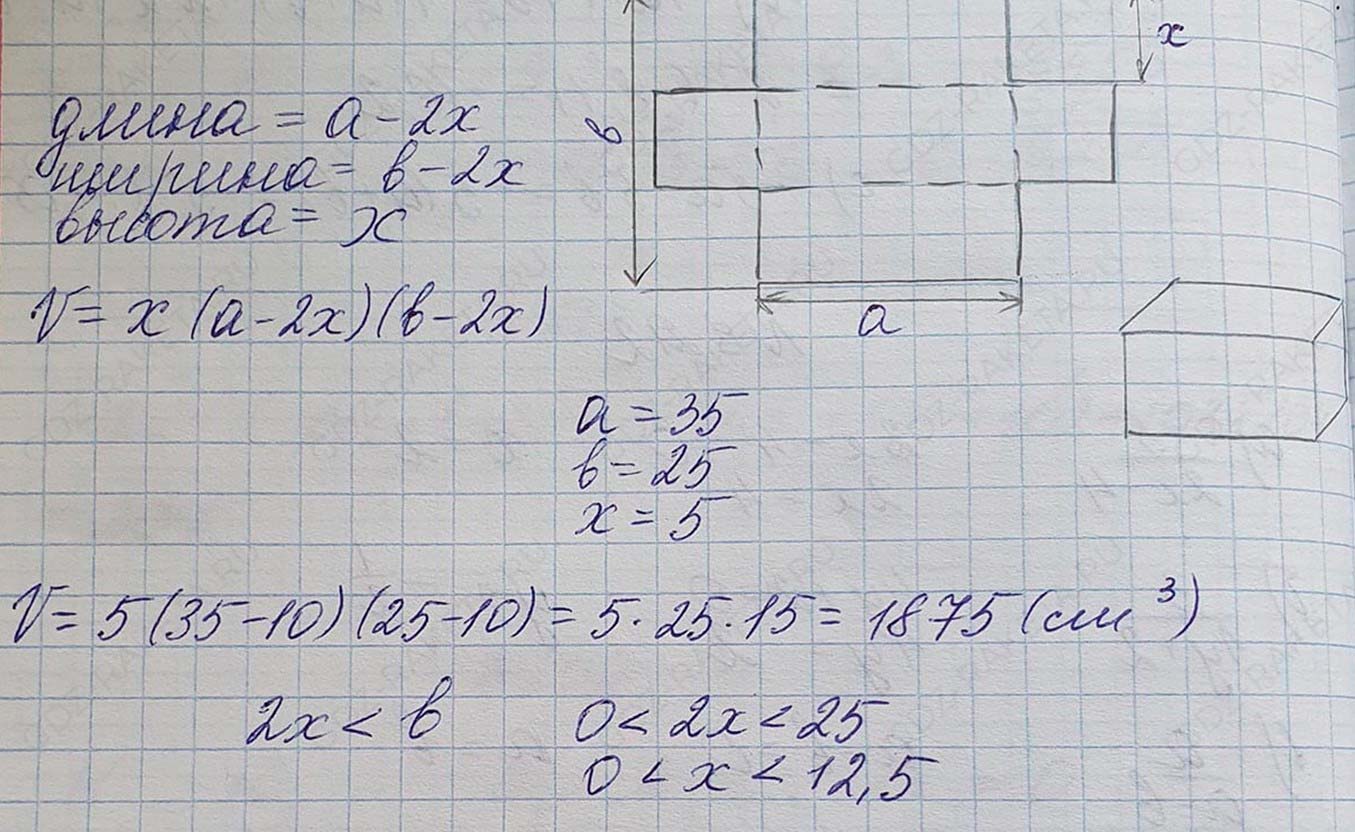 x
длина = a - 2x
ширина = в - 2x
высота = x
в
V = x (a - 2x)(в - 2x)
a
a = 35
в = 25
x = 5
V = 5 (35 - 10) (25 - 10) = 5 · 25 · 15 = 1875 (см³)
2x < в 0 < 2x < 25
0 < x < 12,5